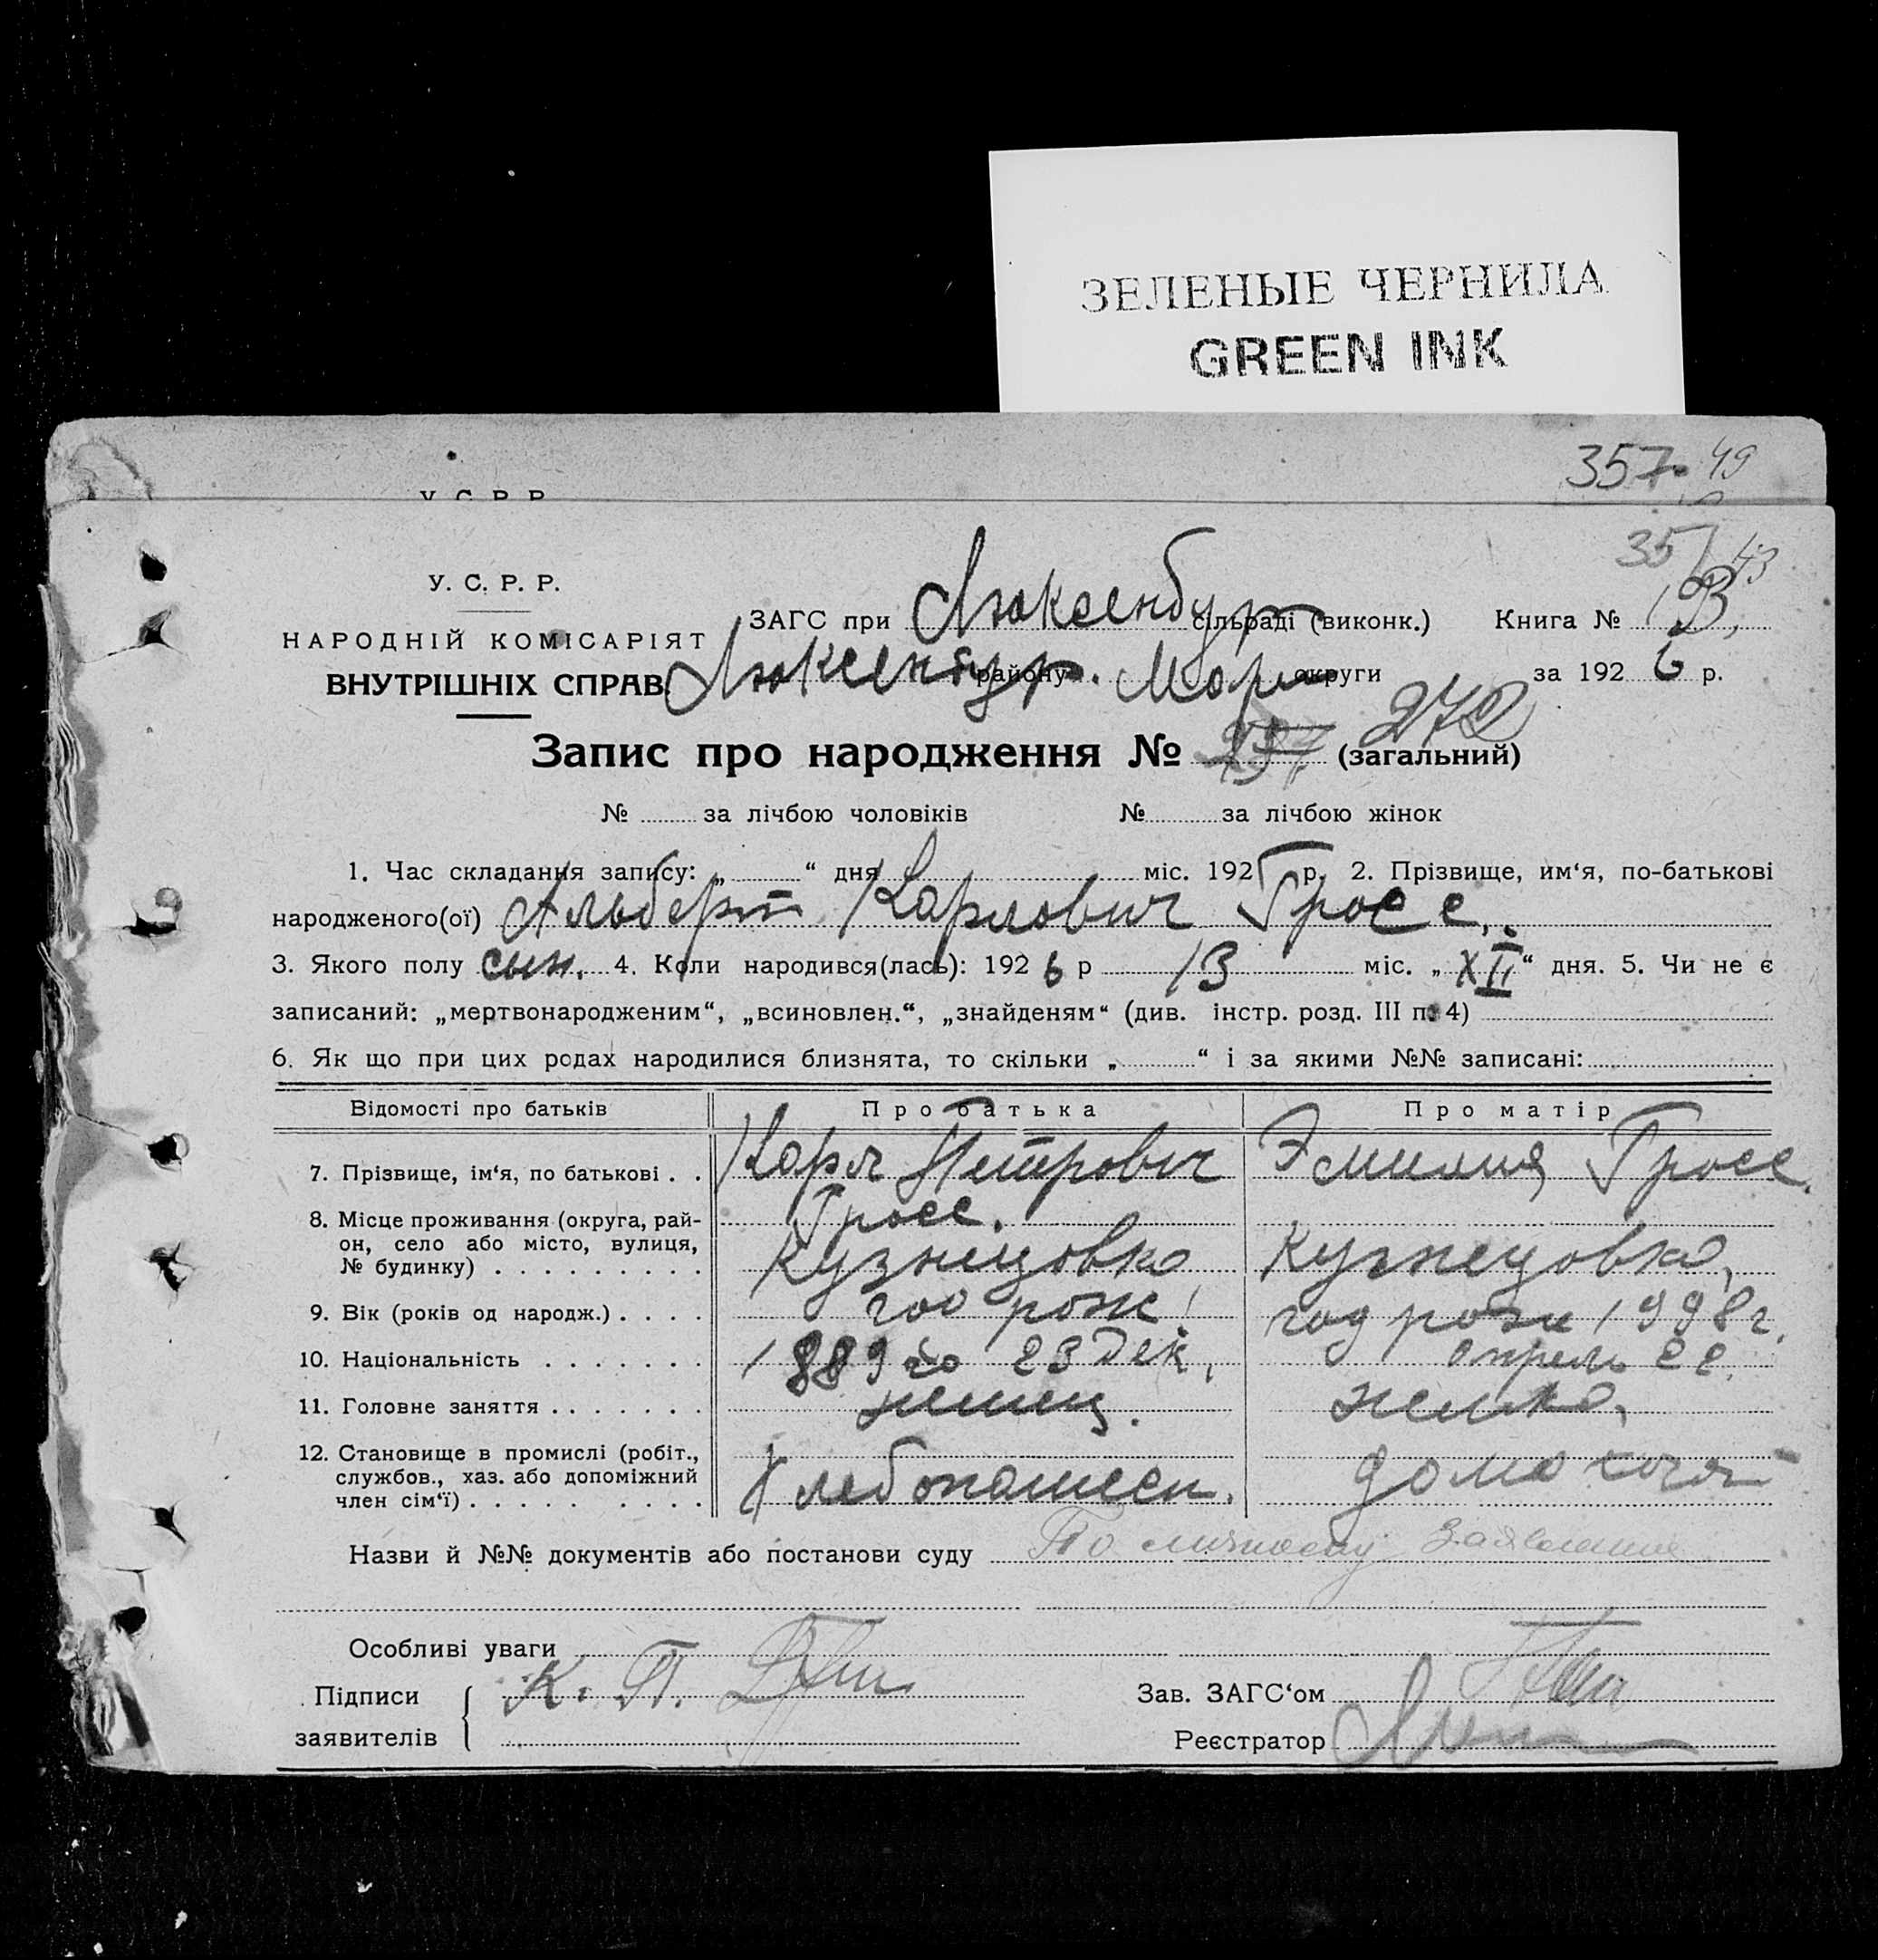 ЗЕЛЕНЫЕ ЧЕРНИЛА
GREEN INK
357 49
У. С. Р. Р.
35 43
У. С. Р. Р.
ЗАГС при Люксенбур сільраді (виконк.) Книга № 13,
НАРОДНІЙ КОМІСАРІЯТ
ВНУТРІШНІХ СПРАВ Люксенбур. району Мар округи за 1926 р.
Запис про народження № 272 (загальний)
№ за лічбою чоловіків № за лічбою жінок
1. Час складання запису: „ “ дня міс. 192 р. 2. Прізвище, им‘я, по-батькові
народженого(ої) Альберт Карлович Гросс,
3. Якого полу сын. 4. Коли народився(лась): 1926 р 13 міс. „XII“ дня. 5. Чи не є
записаний: „мертвонародженим“, „всиновлен.“, „знайденям“ (див. інстр. розд. III п. 4)
6. Як що при цих родах народилися близнята, то скільки „ “ і за якими №№ записані:
Відомості про батьків Про батька Про матір
7. Прізвище, ім‘я, по батькові . . Карл Петрович Эмилия Гросс.
Гросс.
8. Місце проживання (округа, рай-
он, село або місто, вулиця,
№ будинку) . . . . . . . . . Кузнецовка Кузнецовка,
9. Вік (років од народж.) . . . . год рож. год рож 1998 г.
10. Національність . . . . . . . 1889 го 23 Дек. апрель 22.
11. Головне заняття . . . . . . . немец. немка,
12. Становище в промислі (робіт.,
службов., хаз. або допоміжний
член сім‘ї) . . . . . . . . . . Хлебопашец. домохоз
Назви й №№ документів або постанови суду По личному заявлению
Особливі уваги
Підписи К. П. Зав. ЗАГС‘ом
заявителів Реєстратор